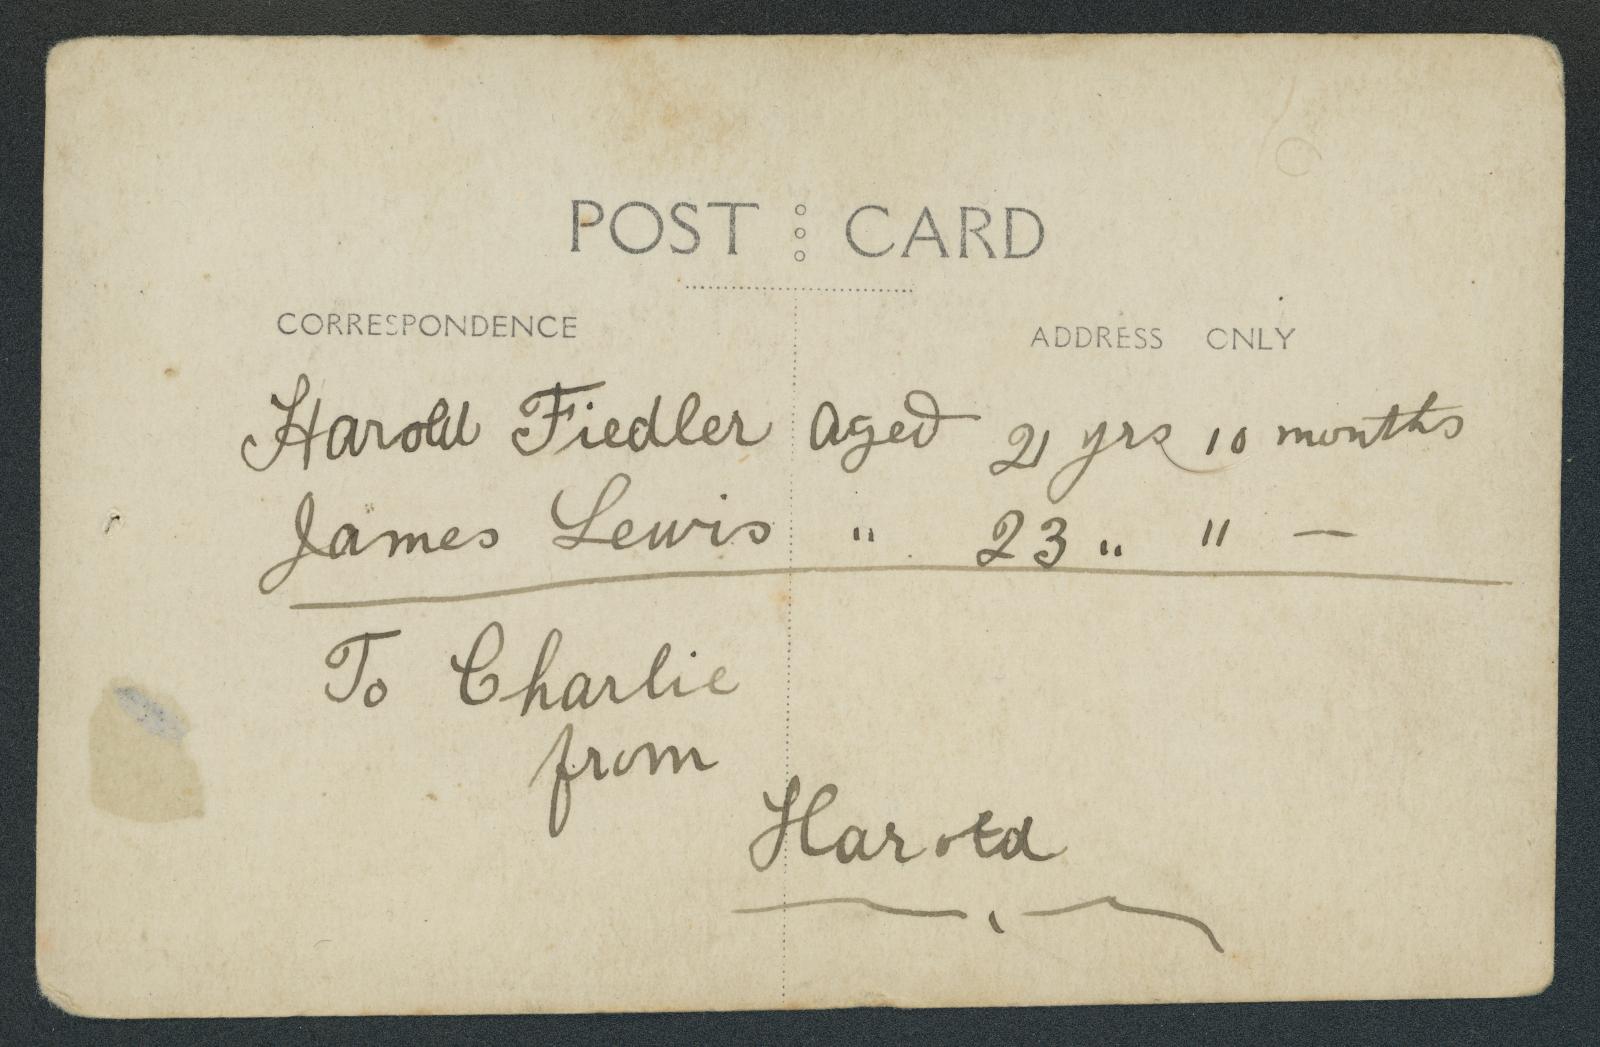 POST CARD
CORRESPONDENCE
ADDRESS ONLY
Harold Fiedler aged 21 yrs 10 months
James Lewis " 23 " " —
To Charlie
from
Harold